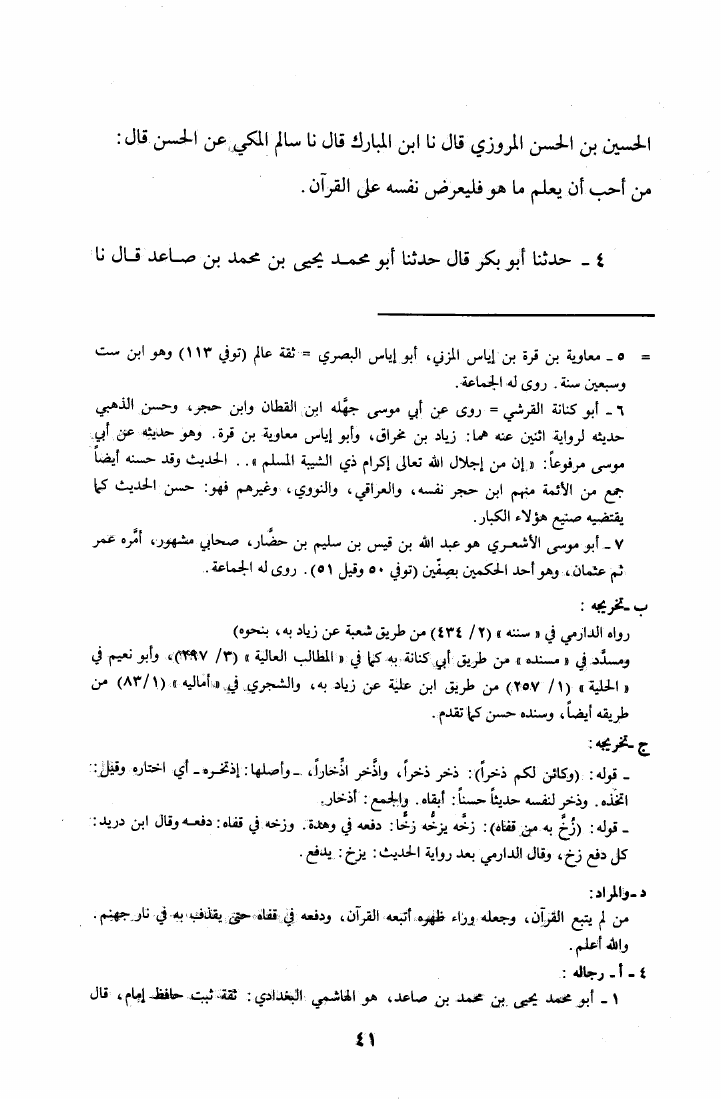 الحسين بن الحسن المروزي قال نا ابن المبارك قال نا سالم المكي عن الحسن قال :
من أحب أن يعلم ما هو فليعرض نفسه على القرآن .
٤ ـ حدثنا أبو بكر قال حدثنا أبو محمـد يحيى بن محمد بن صـاعد قـال نا
= ٥ ـ معاوية بن قرة بن إياس المزني، أبو إياس البصري = ثقة عالم (توفي ١١٣) وهو ابن ست
وسبعين سنة . روى له الجماعة .
٦ ـ أبو كنانة القرشي = روى عن أبي موسى جهَّله ابن القطان وابن حجر، وحسن الذهبي
حديثه لرواية اثنين عنه هما: زياد بن مخراق، وأبو إياس معاوية بن قرة. وهو حديثه عن أبي
موسى مرفوعاً: « إن من إجلال الله تعالى إكرام ذي الشيبة المسلم » . . الحديث وقد حسنه أيضاً
جمع من الأئمة منهم ابن حجر نفسه، والعراقي، والنووي، وغيرهم فهو: حسن الحديث كما
يقتضيه صنيع هؤلاء الكبار.
٧ ـ أبو موسى الأشعـري هو عبد الله بن قيس بن سليم بن حضَّار، صحابي مشهور، أمَّره عمر
ثم عثمان، وهو أحد الحكمين بصِفِّين (توفي ٥٠ وقيل ٥١). روى له الجماعة .
ب ـ تخريجه :
رواه الدارمي في « سننه » (٢/ ٤٣٤) من طريق شعبة عن زياد به، بنحوه)
ومسدَّد في « مسنده » من طريق أبي كنانة به كما في « المطالب العالية » (٣/ ٢٩٧)، وأبو نعيم في
« الحلية » (١/ ٢٥٧) من طريق ابن علية عن زياد به، والشجري في « أماليه » (٨٣/١) من
طريقه أيضاً، وسنده حسن كما تقدم .
ج ـ تخريجه :
ـ قوله: (وكائن لكم ذخراً): ذخر ذخراً، واذَّخر اذِّخاراً، ـ وأصلها: إذتخـره ـ أي اختاره وقيل:
اتخذه. وذخر لنفسه حديثاً حسناً: أبقاه. والجمع: أذخار.
ـ قوله: (زُخَّ به من قفاه): زخَّه يزخُّه زخًّا: دفعه في وهدة. وزخه في قفاه: دفعـه وقال ابن دريد:
كل دفع زخ، وقال الدارمي بعد رواية الحديث: يزخ: يدفع .
د ـ والمراد:
من لم يتبع القرآن، وجعله وراء ظهره أتبعه القرآن، ودفعه في قفاه حتى يقذف به في نار جهنم .
والله أعلم .
٤ ـ أ ـ رجاله :
١ ـ أبو محمد يحيى بن محمد بن صاعد، هو الهاشمي البغدادي: ثقة ثبت حافظ إمام، قال
٤١